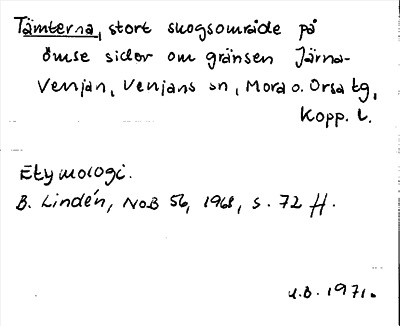 Tämterna, stort skogsområde på
ömse sidor om gränsen Järna-
Venjan, Venjans sn, Mora o. Orsa tg,
Kopp. l.
Etymologi.
B. Lindén, NoB 56, 1968, s. 72 ff.
u.B. 1971.